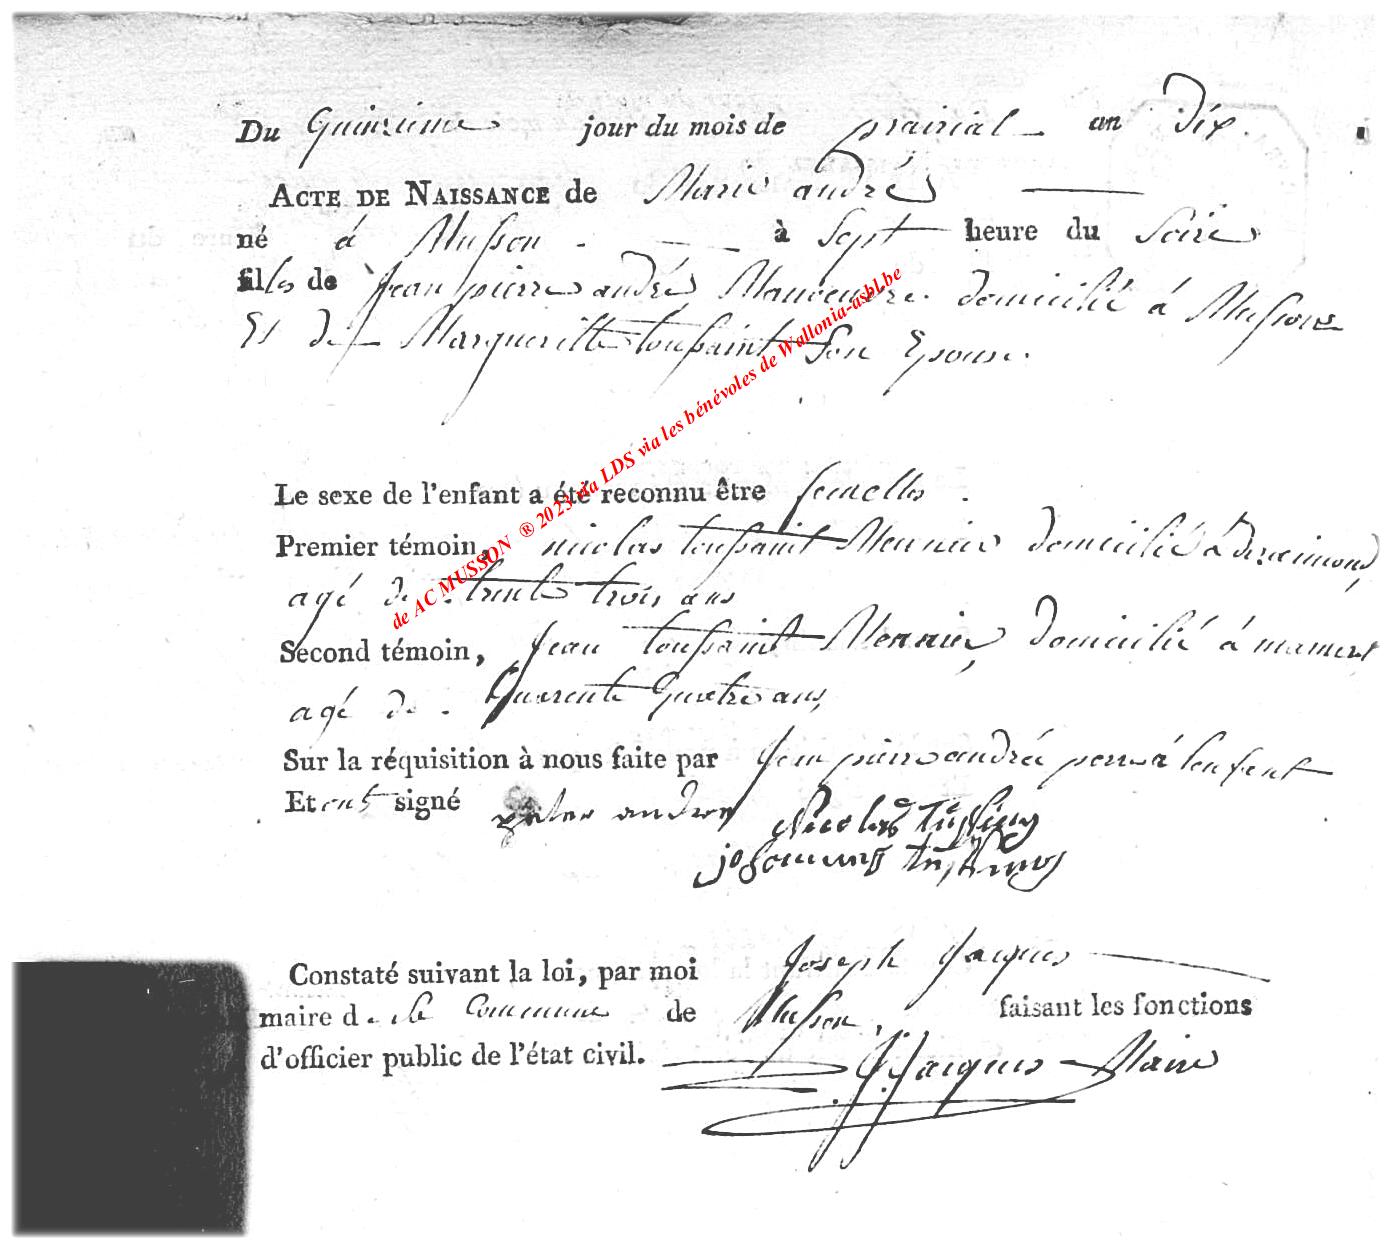 Du Quinzieme jour du mois de prairial an dix.
ACTE DE NAISSANCE de Marie andré
né à Musson à Sept heure du Soire
fille de Jean pierre andré domicilié à Musson
Et de Margueritte toussaint Son Epouse.
Le sexe de l'enfant a été reconnu être femelle.
Premier témoin, nicolas toussaint Meunier domicilié à
agé de trente trois ans
Second témoin, Jean toussaint Meunier, domicilié à
agé de Quarente Quatre ans,
Sur la réquisition à nous faite par Jean pierre andré perre à lenfent
Et ont signé andre Nicolas
Constaté suivant la loi, par moi Joseph Jacques
maire de la Commune de Musson, faisant les fonctions
d'officier public de l'état civil. J. Jacques Maire
de AC MUSSON ® 2023 via LDS via les bénévoles de Wallonia-asbl.be